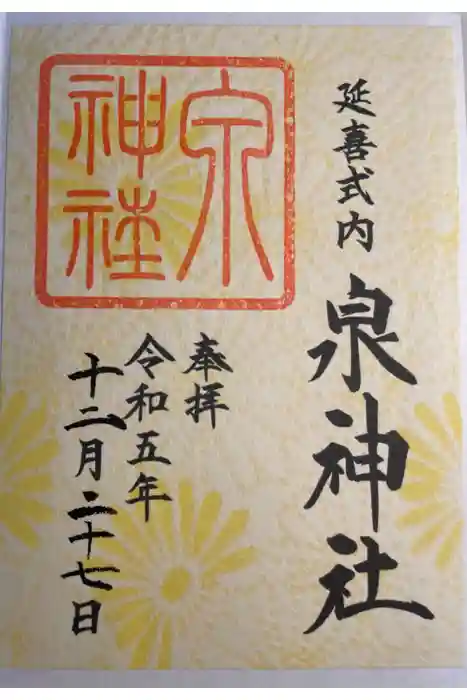 延喜式内 泉神社
奉拝
令和五年
十二月二十七日
泉
神社